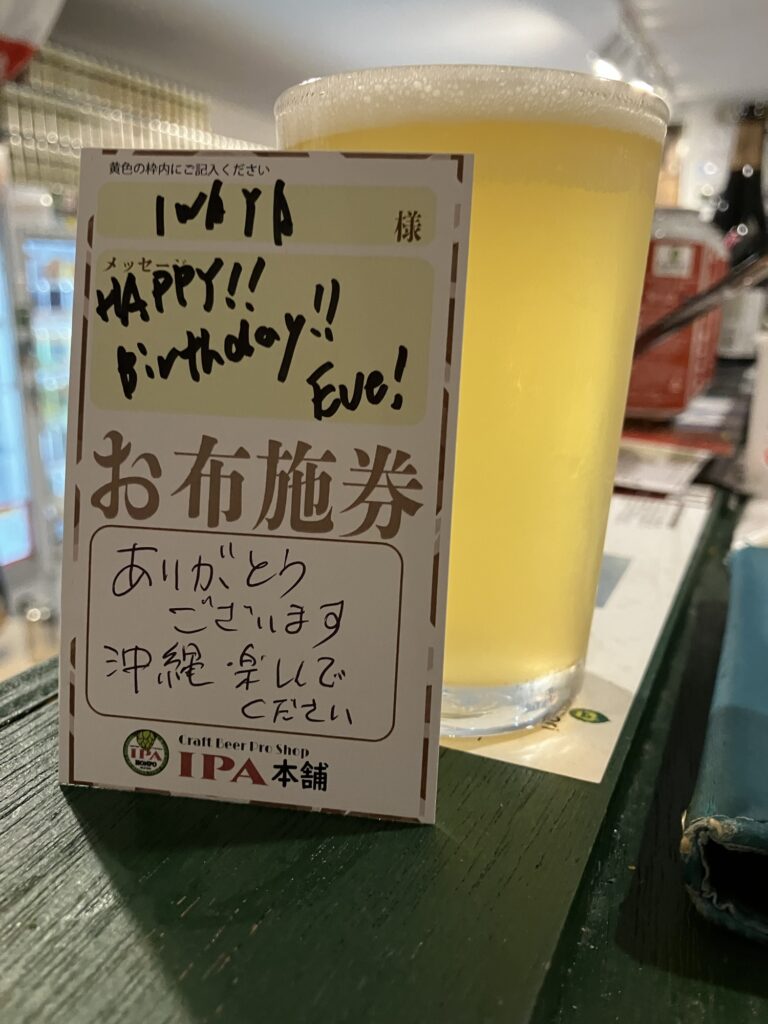 黄色の枠内にご記入ください
IWAYA 様
メッセージ
HAPPY!!
Birthday!!
Eve!
お布施券
ありがとう
ございます
沖縄 楽しんで
ください
IPA
HONPO
Craft Beer Pro Shop
IPA本舗